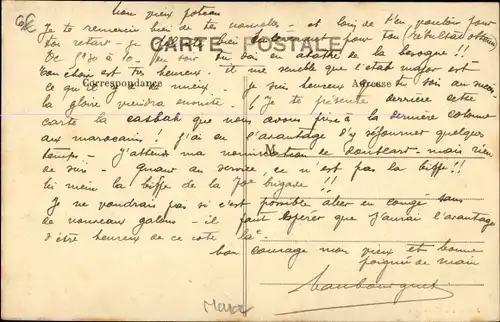 68c
mon vieux poteau
Je te remercie bien de tes nouvelles et loin de t'en vouloir pour
ton retard je bien pour ton résultat
CARTE POSTALE
De 5h30 à 10 du soir tu dois en abattre de la besogne!!
Ton choix est très heureux. il me semble que l'état major est
ce qu'il y a de mieux. je suis heureux si tu dois au succès
Correspondance
Adresse
la gloire viendra ensuite. Je te présente derrière cette
carte la casbah que nous avons prise à la dernière colonne
aux marocains! j'ai eu l'avantage d'y séjourner quelque
M
temps. J'attends ma nomination de mais rien
de sûr. Quant au service, ce n'est pas la biffe!!
ni même la biffe de la 70e brigade!!
Je ne voudrais pas si c'est possible aller en congé sans
de nouveaux galons. il faut espérer que j'aurai l'avantage
d'être heureux de ce côté là.
bon courage mon vieux et bonne
poignée de main
Maroc